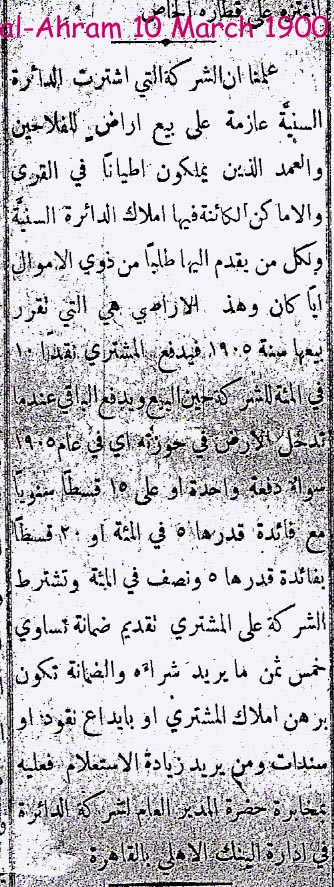 على قطاره الخاص
al-Ahram 10 March 1900
علمنا ان الشركة التي اشترت الدائرة
السنيَّة عازمة على بيع اراضٍ للفلاحين
والعمد الذين يملكون اطيانًا في القرى
والاماكن الكائنة فيها املاك الدائرة السنيَّة
ولكل من يقدم اليها طلبًا من ذوي الاموال
ايًا كان وهذ الاراضي هي التي تقرر
بيعها سنة ١٩٠٥ فيدفع المشتري نقدًا ١٠
في المئة للشركة حين البيع ويدفع الباقي عندما
تدخل الارض في حوزته اي في عام ١٩٠٥
سواءً دفعة واحدة او على ١٥ قسطًا سنويًا
مع فائدة قدرها ٥ في المئة او ٢٠ قسطًا
بفائدة قدرها ٥ ونصف في المئة وتشترط
الشركة على المشتري تقديم ضمانة تساوي
خمس ثمن ما يريد شراءَه والضمانة تكون
برهن املاك المشتري او بايداع نقود او
سندات ومن يريد زيادة الاستعلام فعليه
بمخابرة حضرة المدير العام لشركة الدائرة
في ادارة البنك الاهلي بالقاهرة